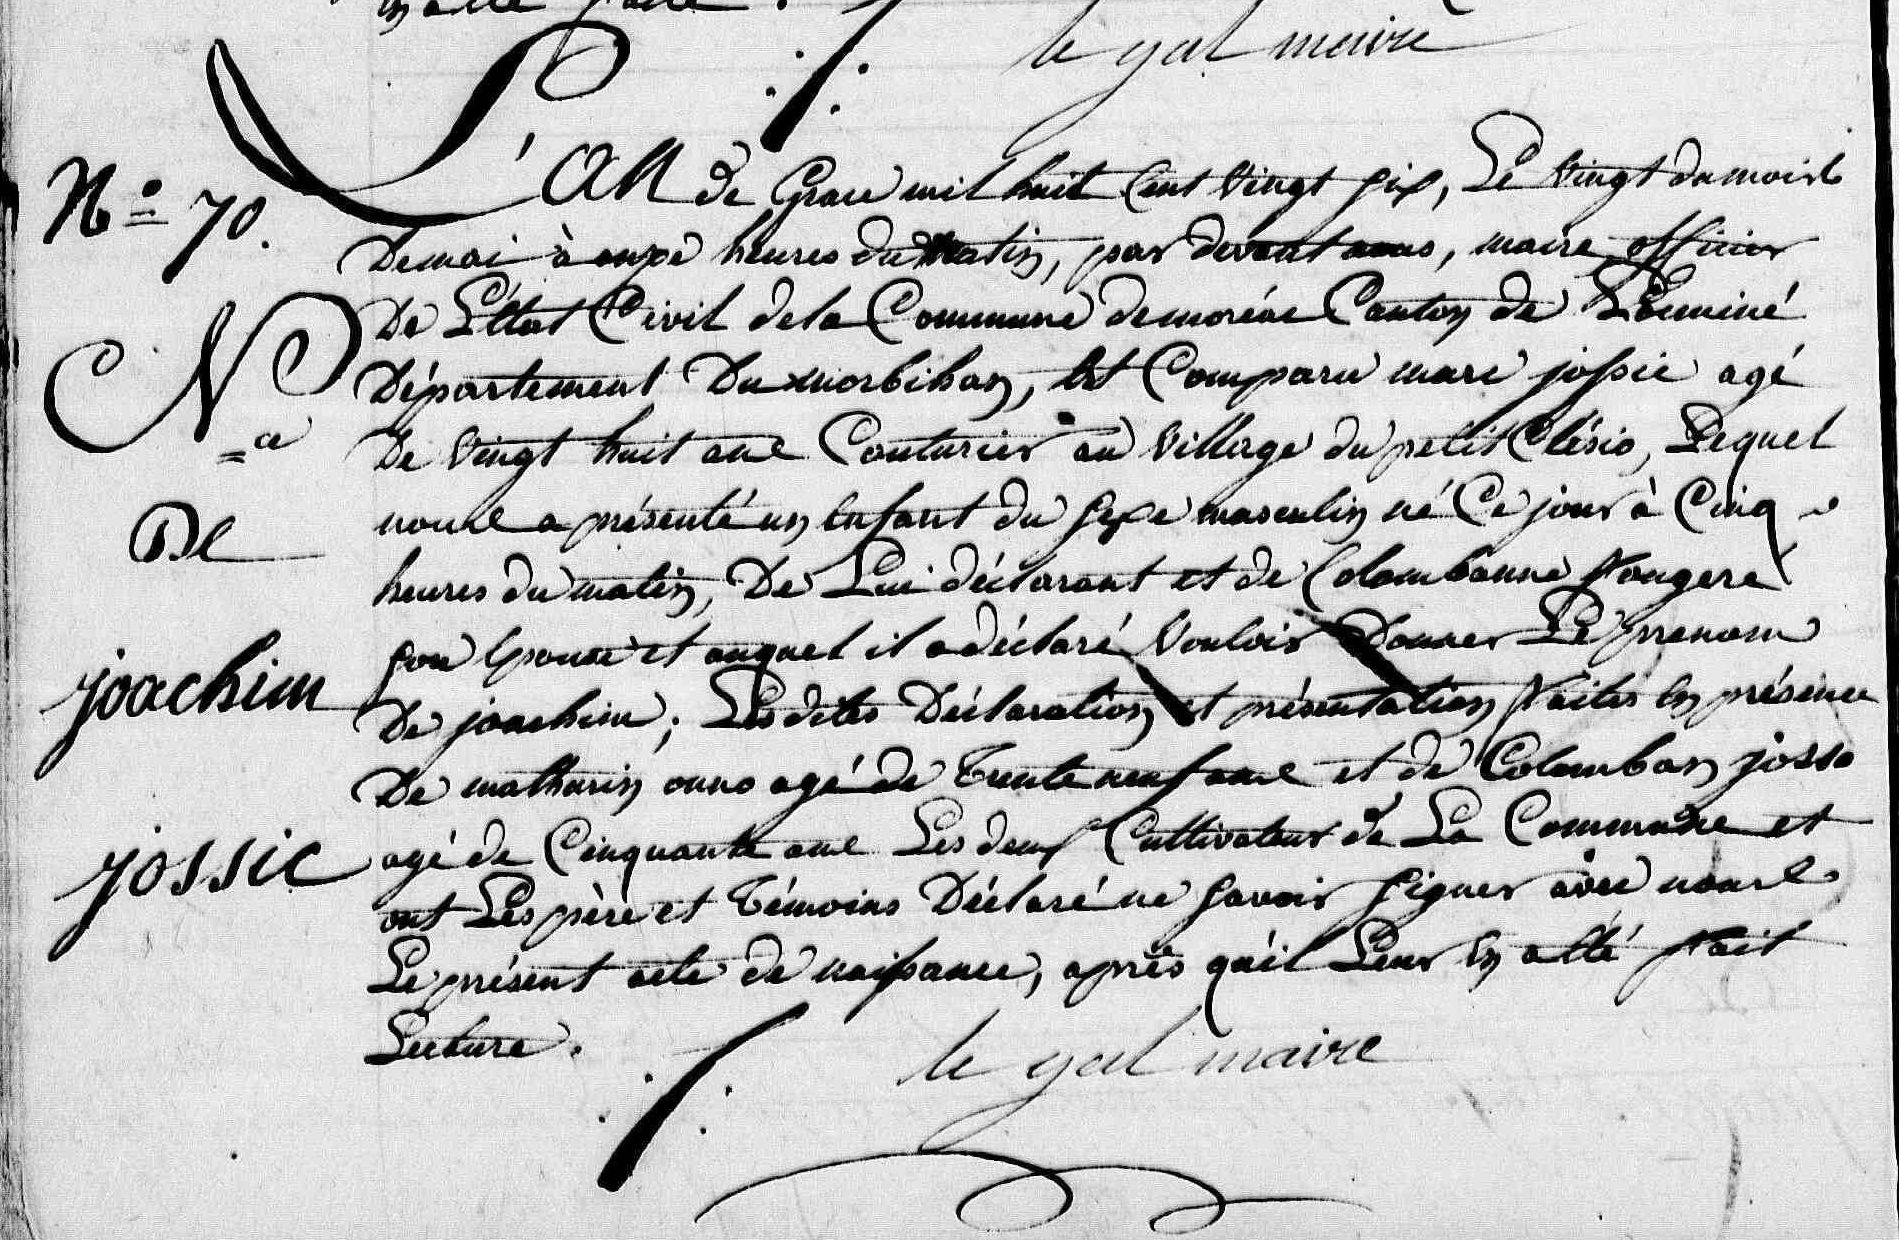 le gal maire
L'An de Grace mil huit Cent Vingt six, Le Vingt du mois
N° 70.
De mai à onze heures du Matin, par devant nous, maire officier
De L'état Civil de la Commune de moréac Canton de Locminé
Département Du morbihan, Est Comparu marc jossic agé
N ce
De Vingt huit ans Couturier au Village du petit Clésio, Lequel
nous a présenté un enfant du sexe masculin né Ce jour à Cinq
De
heures du matin, De Lui déclarant et de Colombanne fougere
son épouse et auquel il a déclaré Vouloir Donner Le prenom
joachim
De joachim; Lesdites Déclaration et présentation faites en présence
De mathurin onno agé de Trente neuf ans et de Colomban josso
agé de Cinquante ans Les deux Cultivateurs de La Commune et
jossic
ont Les père et Témoins Déclaré ne savoir signer avec nous
Le présent acte de naissance, après qu'il Leur en a été fait
Lecture.
le gal maire